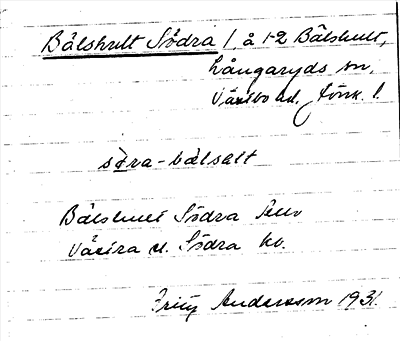 Bälshult Södra 1, å 1-2 Bälshult,
Långaryds sn,
Västbo hd, Jönk. l.
söra-bälsalt
Bälshult Södra
Västra o. Södra
Fritz Andersson 1931.